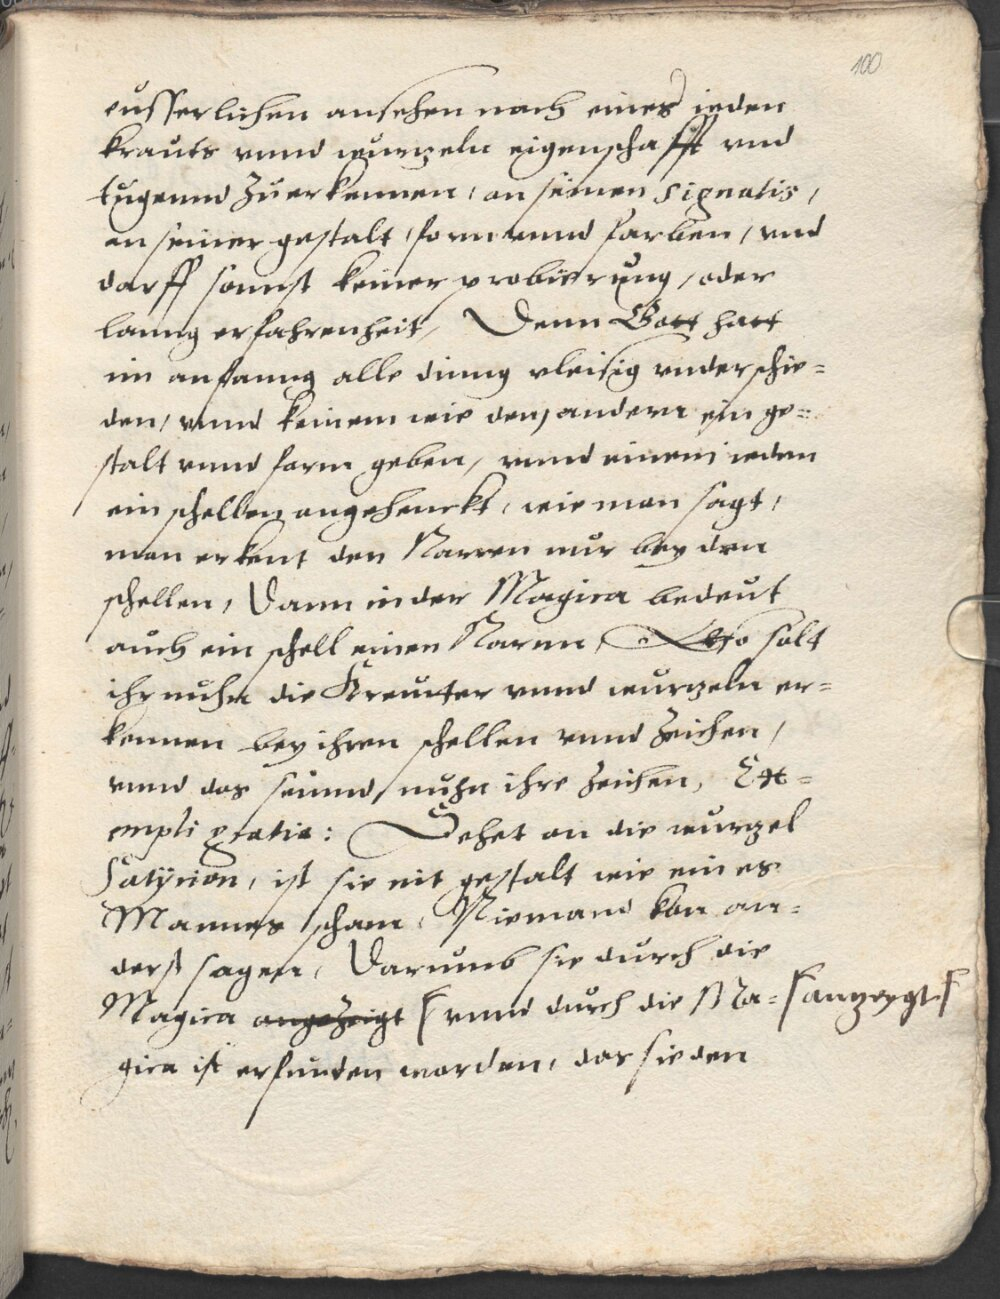 100
eusserlichen ansehen nach eines ieden
krauts unnd wurtzeln eigenschafft und
tugennd zuerkennen, an seinen Signatis,
an seiner gestalt, form unnd farben, und
darff sonnst keiner probierung, oder
lanng erfahrenheit, Denn Gott hatt
im anfanng alle dinng vleisig underschie=
den, unnd keinem wie dem andern ein ge=
stalt unnd form geben, unnd einem ieden
ein schellen angehenckt, wie man sagt,
man erkent den Narren nur bey den
schellen, Dann in der Magica bedeut
auch ein schell einen Narrn, Also solt
ihr nuhn die Kreutter unnd wurtzeln er=
kennen bey ihren schellen unnd zeichen,
unnd das seinnd nuhn ihre zeichen, Ex=
empli gratia: Sehet an die wurtzel
Satÿrion, ist sie nit gestalt wie eines
Mannes scham, Niemand kan an=
derß sagen, Darumb sie durch die
Magica angezeigt unnd durch die Ma= antzeygt
gica ist erfunden worden, das sie den